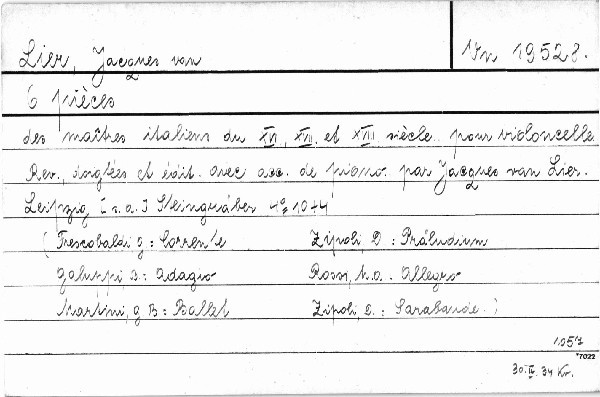 Lier, Jacques van
Vn 19528.
6 pièces
des maîtres italiens du XVI, XVII et XVIII siècle pour violoncelle
Rev., doigtées et édit. avec acc. de piano par Jacques van Lier.
Leipzig [s.a.] Steingräber 4° 10+4
(Frescobaldi G: Corrente Zipoli, D: Präludium
Galuppi B: Adagio Rossi, M.A.: Allegro
Martini, G B: Ballet Zipoli, D.: Sarabande.)
1057
*7022
30.IV.34 Kr.